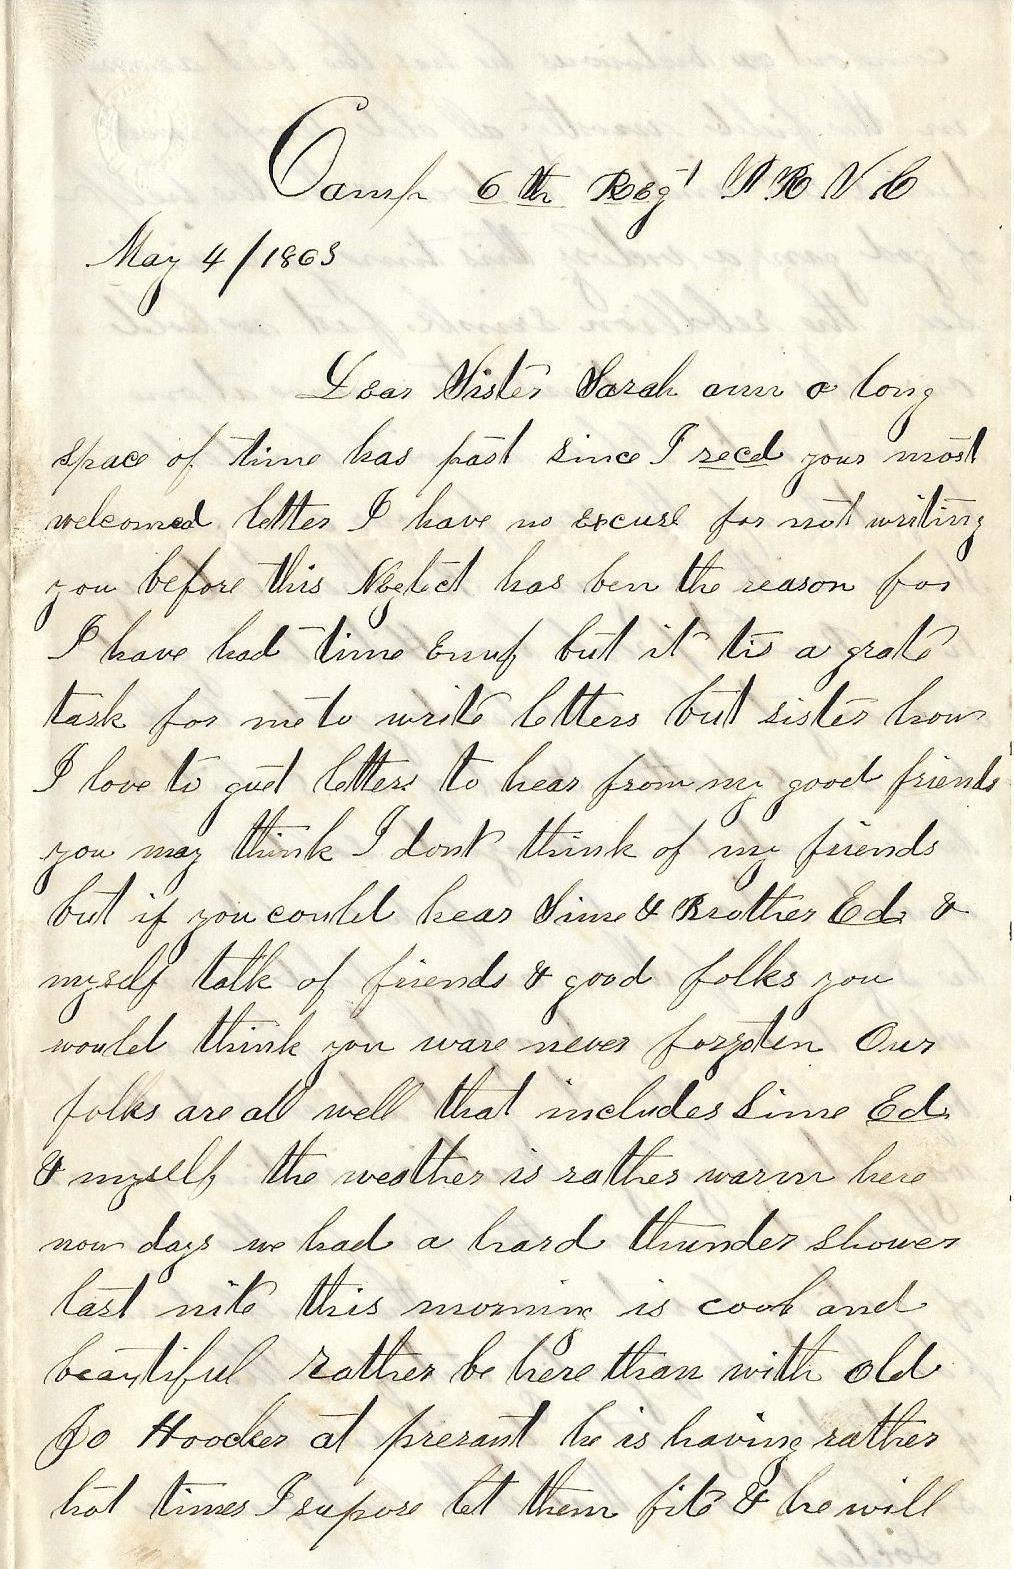 Camp 6th Reg't V R V C
May 4/1863
Dear Sister Sarah ann a long
space of time has past since I recd your most
welcomed letter I have no excuse for not writing
you before this Neglect has ben the reason for
I have had time Enuf but it tis a grate
task for me to write letters but sister how
I love to guet letters to hear from my good friends
you may think I dont think of my friends
but if you could hear Sime & Brother Ed &
myself talk of friends & good folks you
would think you ware never forgoten Our
folks are all well that includes Sime Ed
& myself the weather is rather warm here
now days we had a hard thunder shower
last nite this morning is cool and
beautiful rather be here than with old
Jo Hoocker at presant he is having rather
hot times I supose let them fite & he will